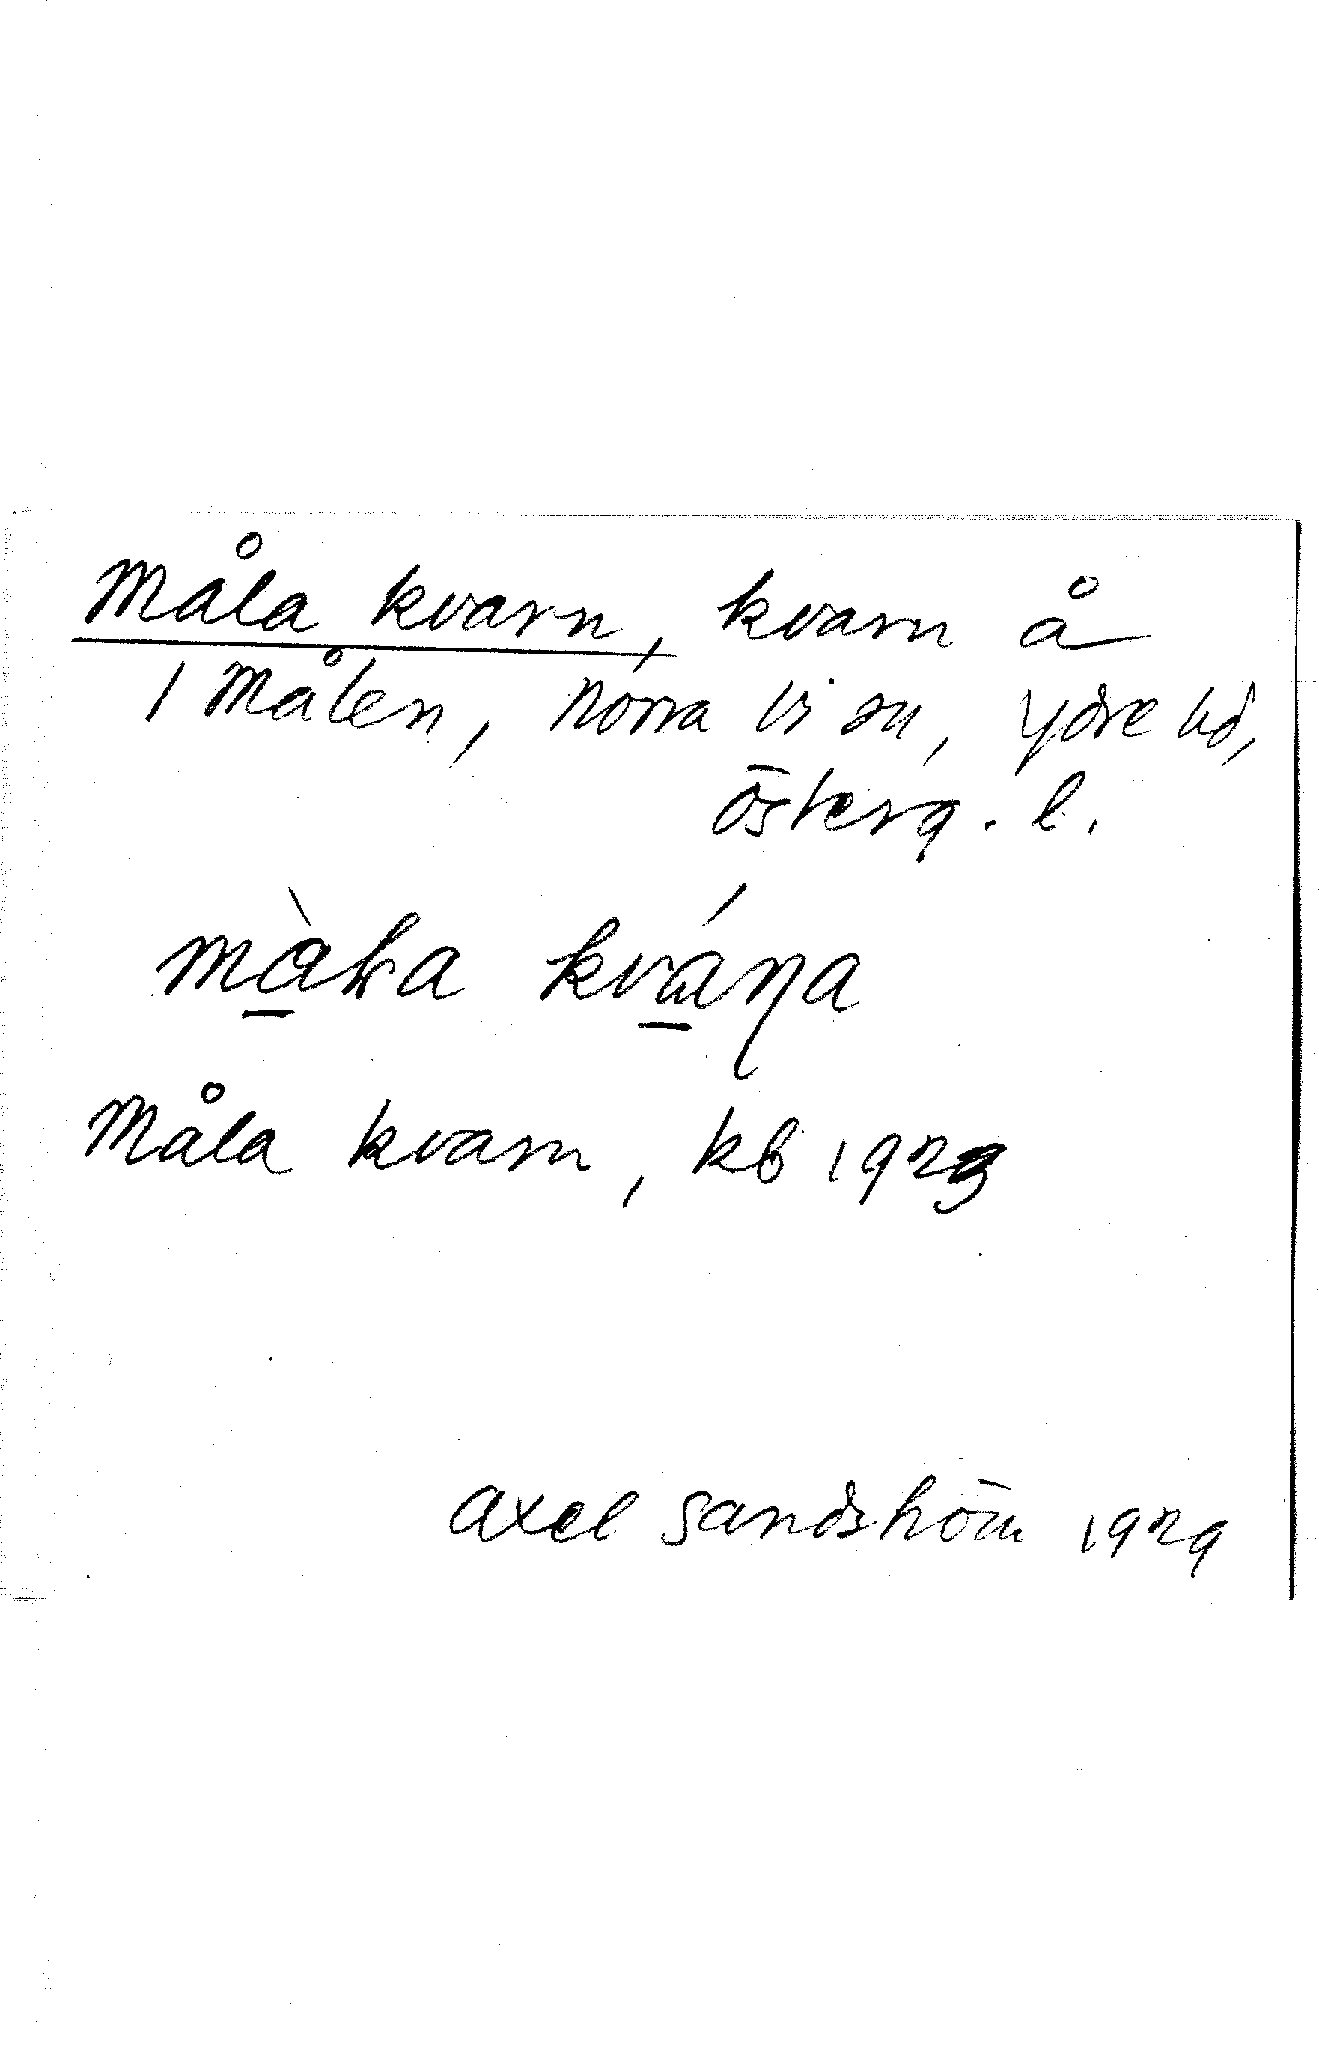 Måla kvarn, kvarn å
1 Målen, Norra Vi sn, Ydre hd,
Österg. l.
Måla kvarn, kb 1929
Axel Sandström 1929